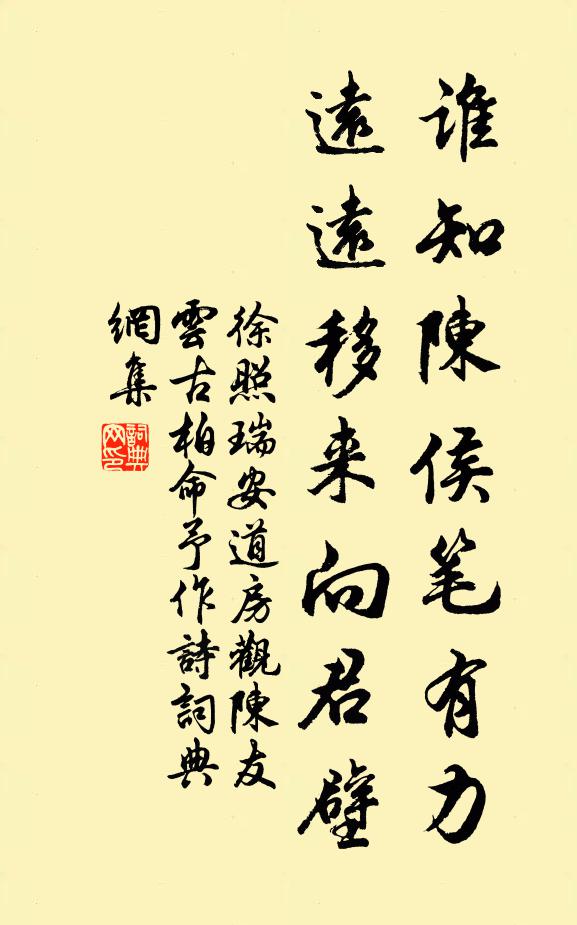 谁知陳侯笔有力
遠遠移来向君壁
徐照瑞安道房觀陳友
雲古柏命予作詩詞典
網集
詞典
网印